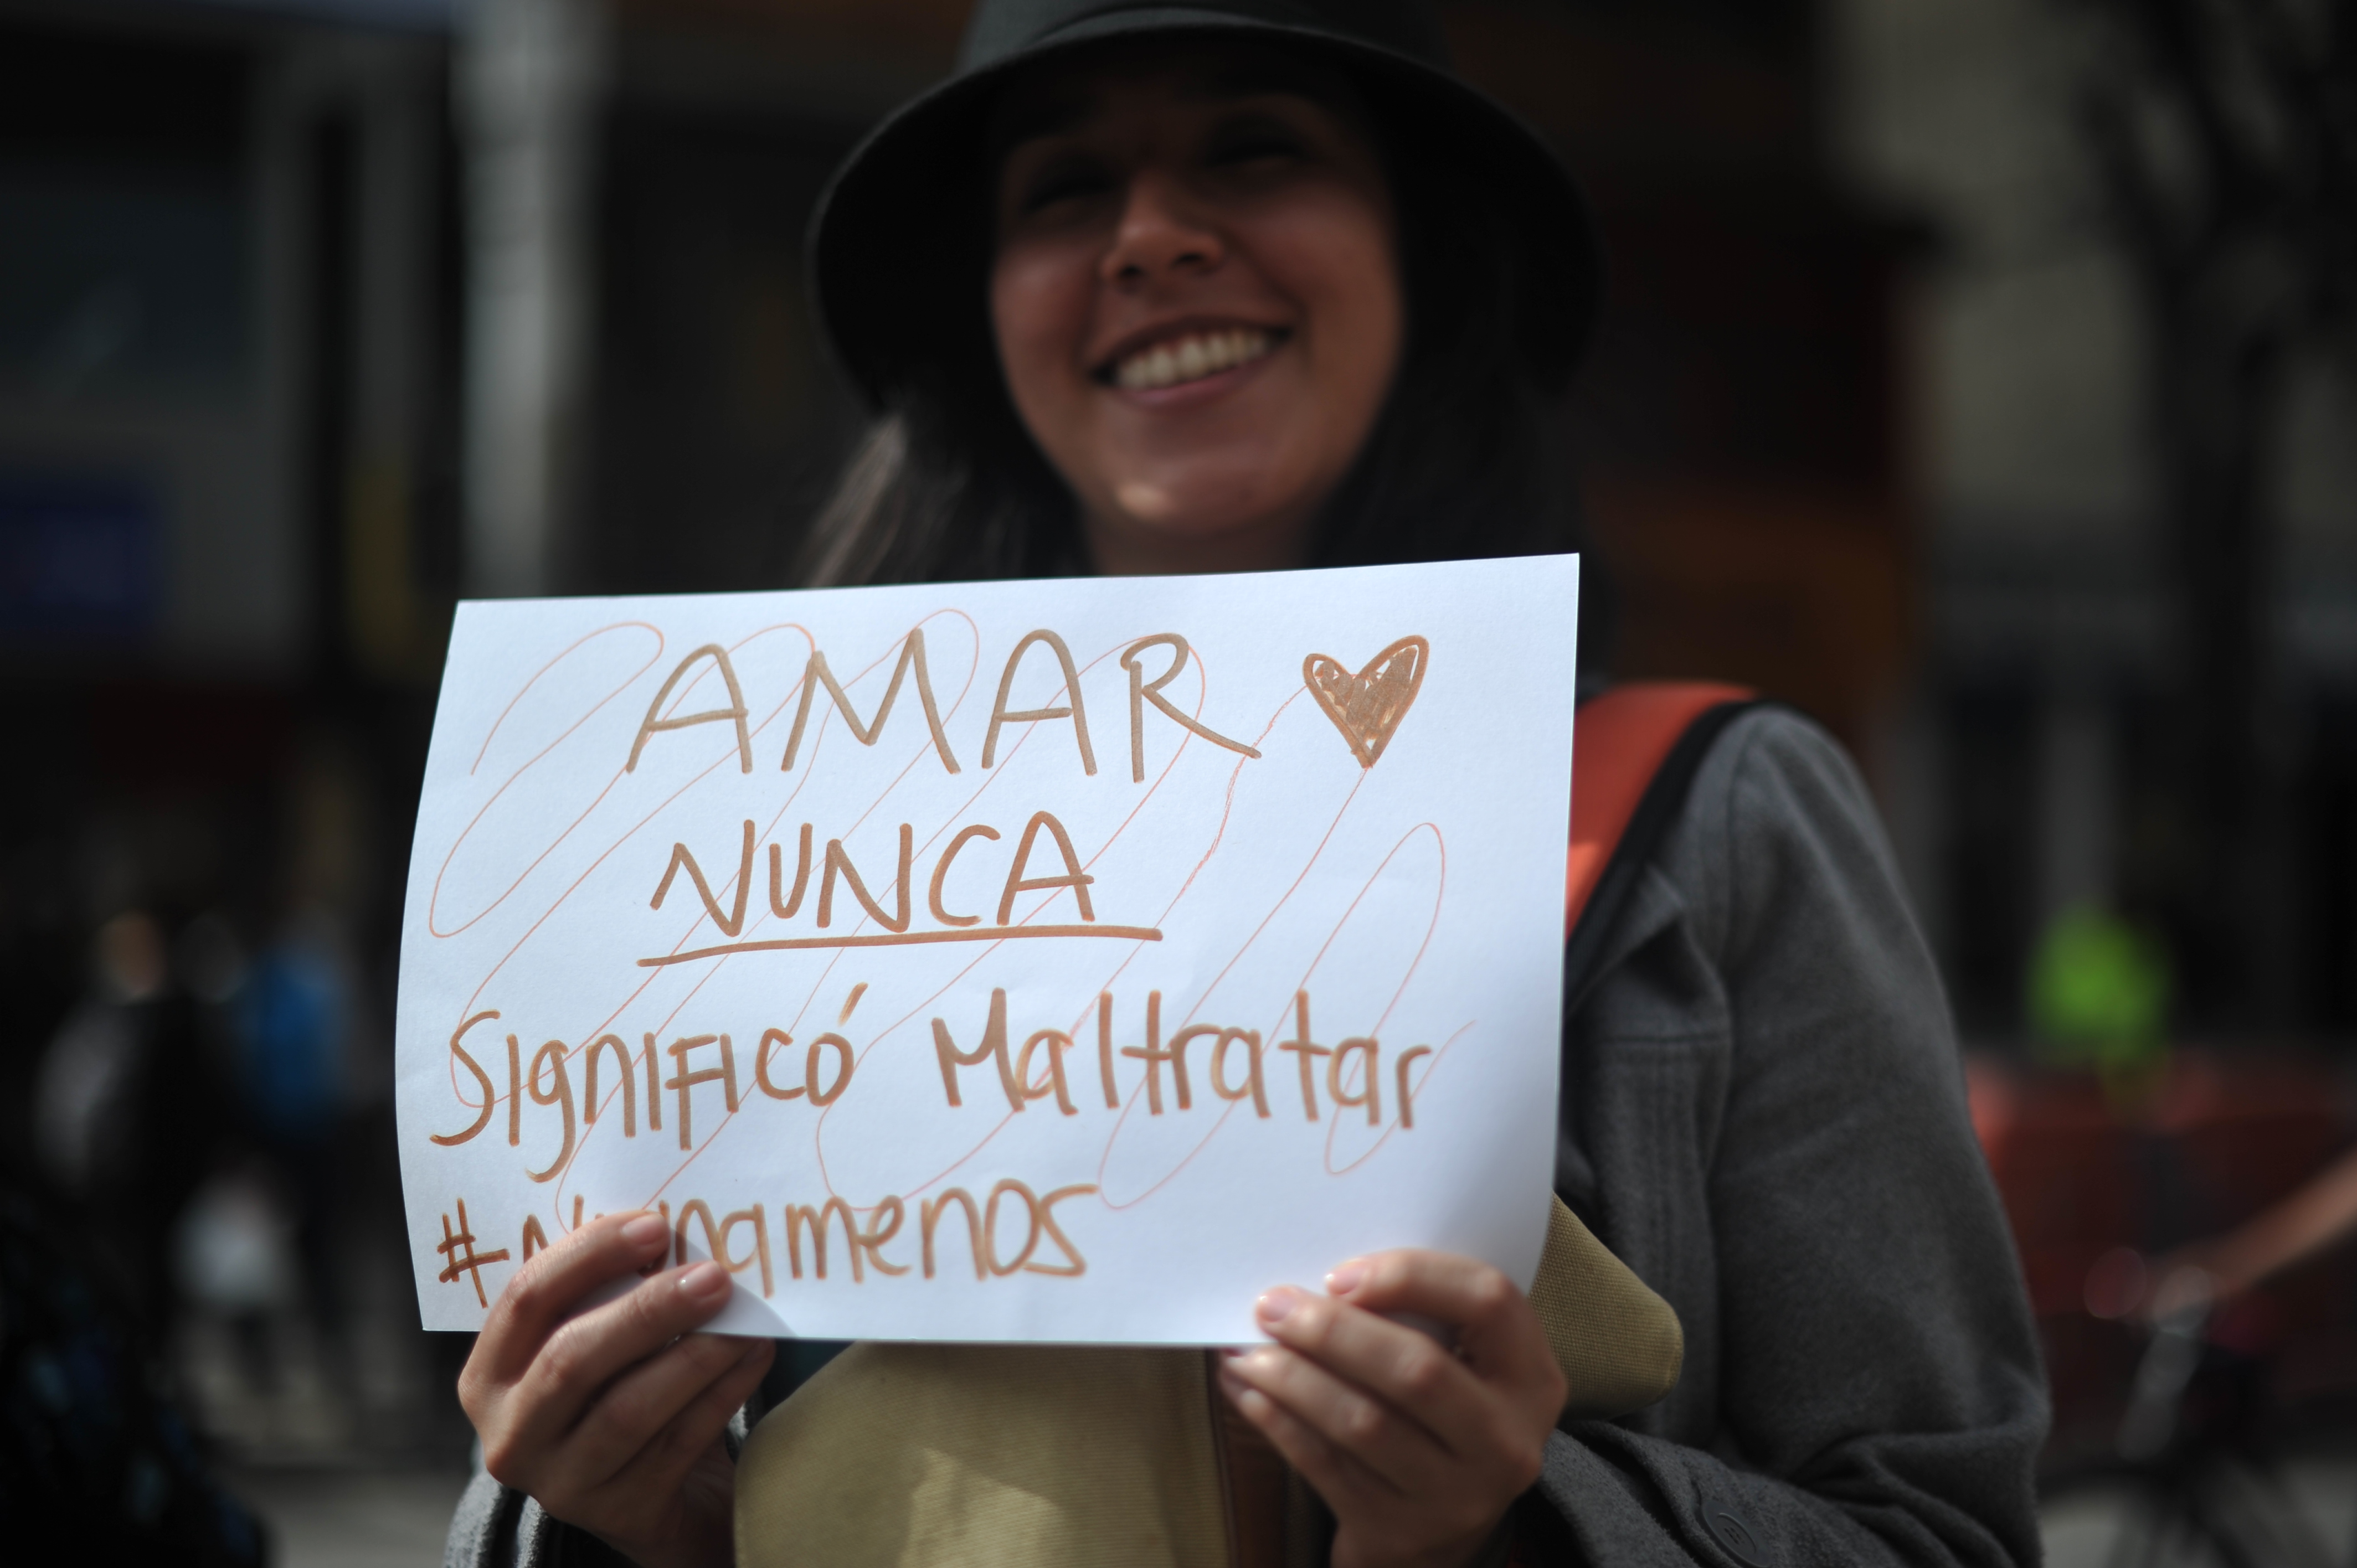 AMAR
NUNCA
Significó Maltratar
menos